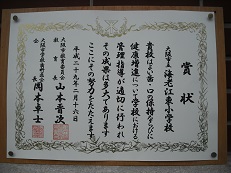 賞状
大阪市立海老江東小学校
貴校はよい歯・口の保持ならびに
健康増進について学校における
管理指導が適切に行われ
その成果は多大であります
ここにその努力をたたえます
平成二十九年二月十六日
大阪市教育委員会
教育長 山本晋次
会長 岡本卓士